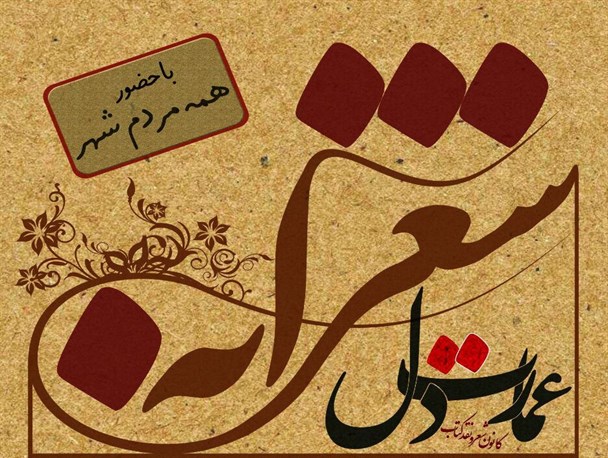 با حضور
همه مردم شهر
شعرانه
عمارت دل
کانون شعر و نقد کتاب